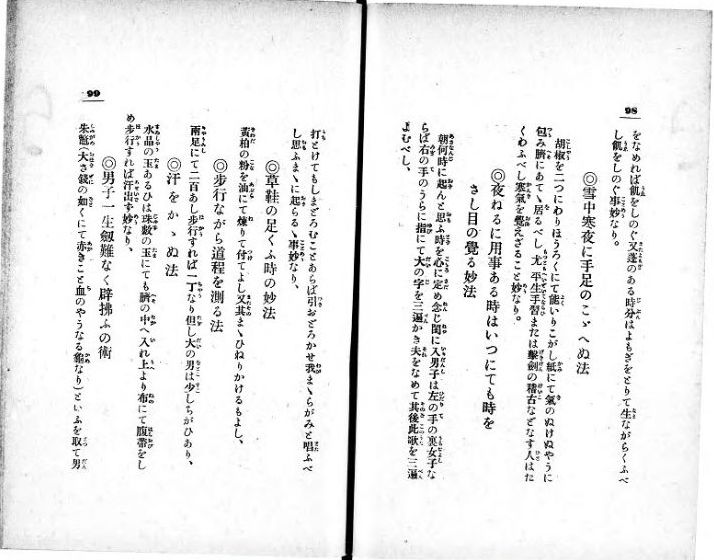 98
をなめれば飢をしのぐ又蓬のある時分はよもぎをとりて生ながらくふべ
し飢をしのぐ事妙なり。
◎雪中寒夜に手足のこゞへぬ法
胡椒を二つにわりほうろくにて能いりこがし紙にて氣のぬけぬやうに
包み臍にあてゝ居るべし、尤平生手習または擊劍の稽古などなす人はた
くわふべし寒氣を覺えざること妙なり。
◎夜ねるに用事ある時はいつにても時を
さし目の覺る妙法
朝何時に起んと思ふ時を心に定め念じ閨に入男子は左の手の裏女子な
らば右の手のうらに指にて大の字を三遍かき夫をなめて其後此歌を三遍
よむべし、
99
打とけてもしまどろむことあらば引おどろかせ我まゝらがみと唱ふべ
し思ふまゝに起らるゝ事妙なり、
◎草鞋の足くふ時の妙法
黃柏の粉を油にて煉りて付てよし又其まゝひねりかけるもよし、
◎步行ながら道程を測る法
兩足にて二百あし步行すれば一丁なり但し大の男は少しちがひあり、
◎汗をかゝぬ法
水晶の玉あるひは珠數の玉にても臍の中へ入れ上より布にて腹帶をし
め步行すれば汗出ず妙なり、
◎男子一生劍難なく辟拂ふの術
朱鼈(大さ錢の如くにて赤きこと血のやうなる龜なり)といふを取て男